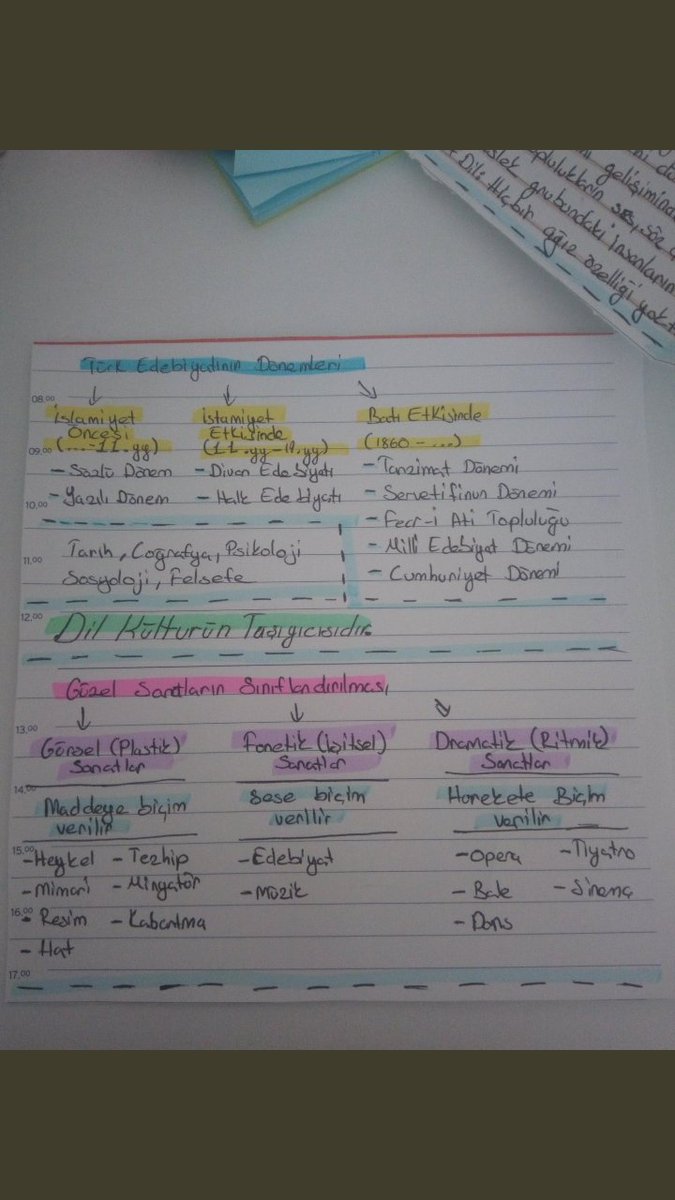 gelişiminde
toplulukların ses, söz
meslek grubundaki insanların
Dil: Hiçbir ağız özelliği yokt
Türk Edebiyatının Dönemleri
08.00
İslamiyet Öncesi (...-11.yy)
- Sözlü Dönem
- Yazılı Dönem
İslamiyet Etkisinde (11.yy-19.yy)
- Divan Edebiyatı
- Halk Edebiyatı
Batı Etkisinde (1860-...)
- Tanzimat Dönemi
- Servetifünun Dönemi
- Fecr-i Ati Topluluğu
- Milli Edebiyat Dönemi
- Cumhuriyet Dönemi
09.00
10.00
11.00
Tarih, Coğrafya, Psikoloji
Sosyoloji, Felsefe
12.00
Dil Kültürün Taşıyıcısıdır.
Güzel Sanatların Sınıflandırılması
13.00
Görsel (Plastik) Sanatlar
Maddeye biçim verilir
- Heykel - Tezhip
- Mimari - Minyatür
- Resim - Kabartma
- Hat
Fonetik (İşitsel) Sanatlar
Sese biçim verilir
- Edebiyat
- Müzik
Dramatik (Ritmik) Sanatlar
Harekete Biçim verilir
- Opera - Tiyatro
- Bale - Sinema
- Dans
14.00
15.00
16.00
17.00